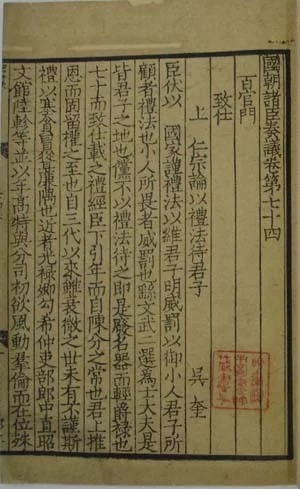 國朝諸臣奏議卷第七十四
百官門
致仕
上 仁宗論以禮法待君子 吳奎
臣伏以 國家謹禮法以維君子明威罰以御小人君子所
顧者禮法也小人所畏者威罰也繇文武二選爲士大夫是
皆君子之地也儻不以禮法待之即是廢名器而輕爵祿也
七十而致仕載之禮經臣下引年而自陳分之常也君上推
恩而固留權之至也自三代以來雖衰微之世未有不謹斯
禮以寒奔冒養廉隅也近者光祿卿勾希仲吏部郎中直昭
文館陸軫等並以年高特與分司初欲風動羣倫而在位殊